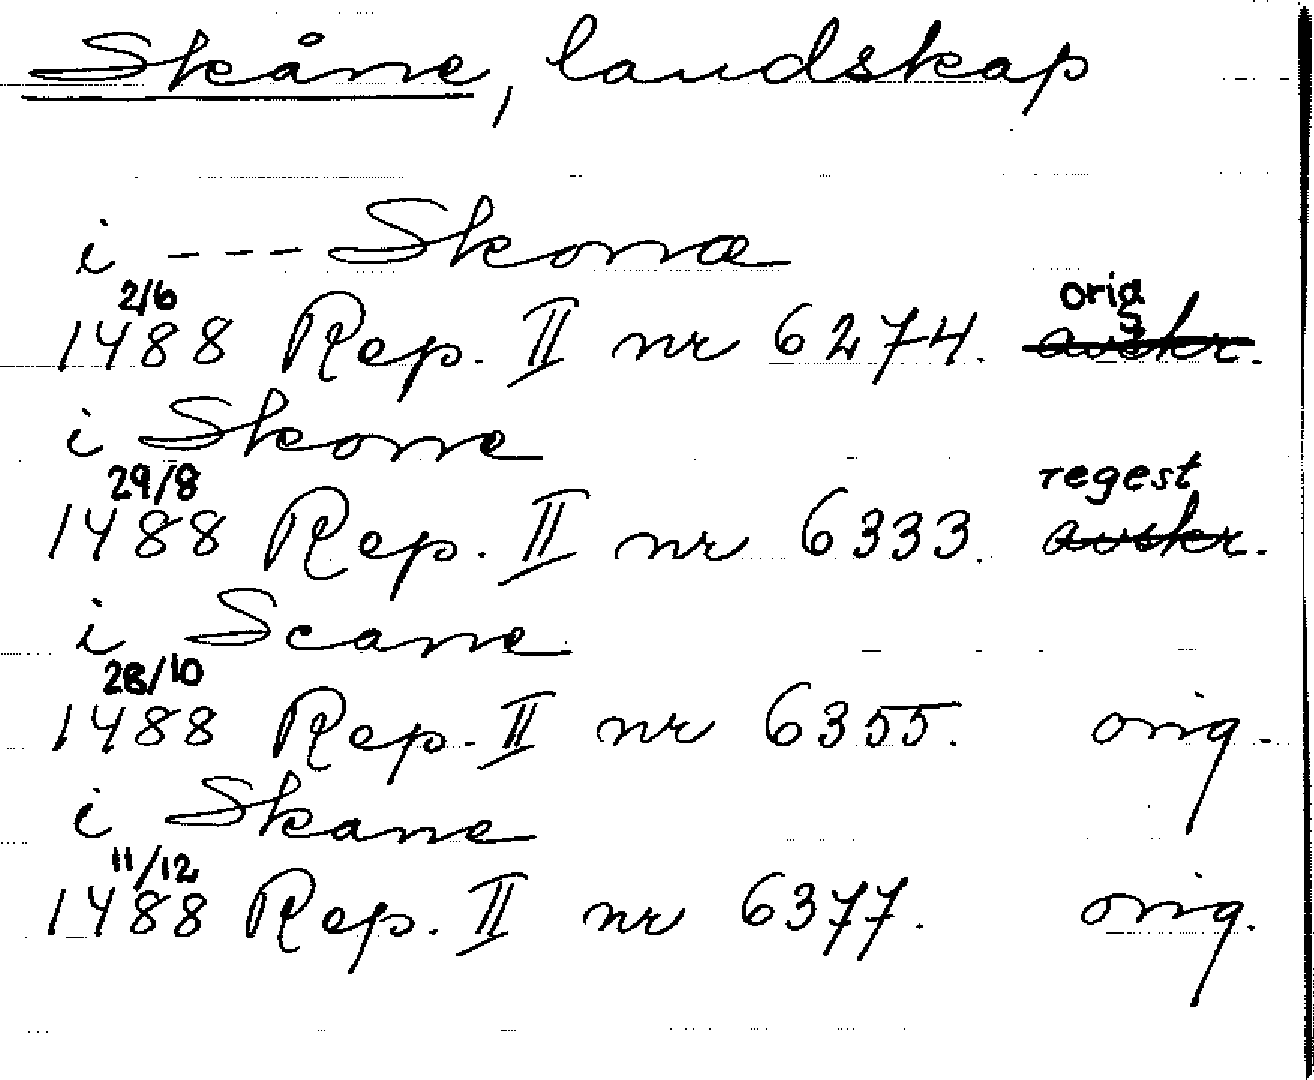 Skåne, landskap
i - - - Skonæ
2/6 orig
1488 Rep. II nr 6274. avskr.
i Skone
29/8 regest
1488 Rep. II nr 6333. avskr.
i Scane
28/10
1488 Rep. II nr 6355. orig.
i Skane
11/12
1488 Rep. II nr 6377. orig.